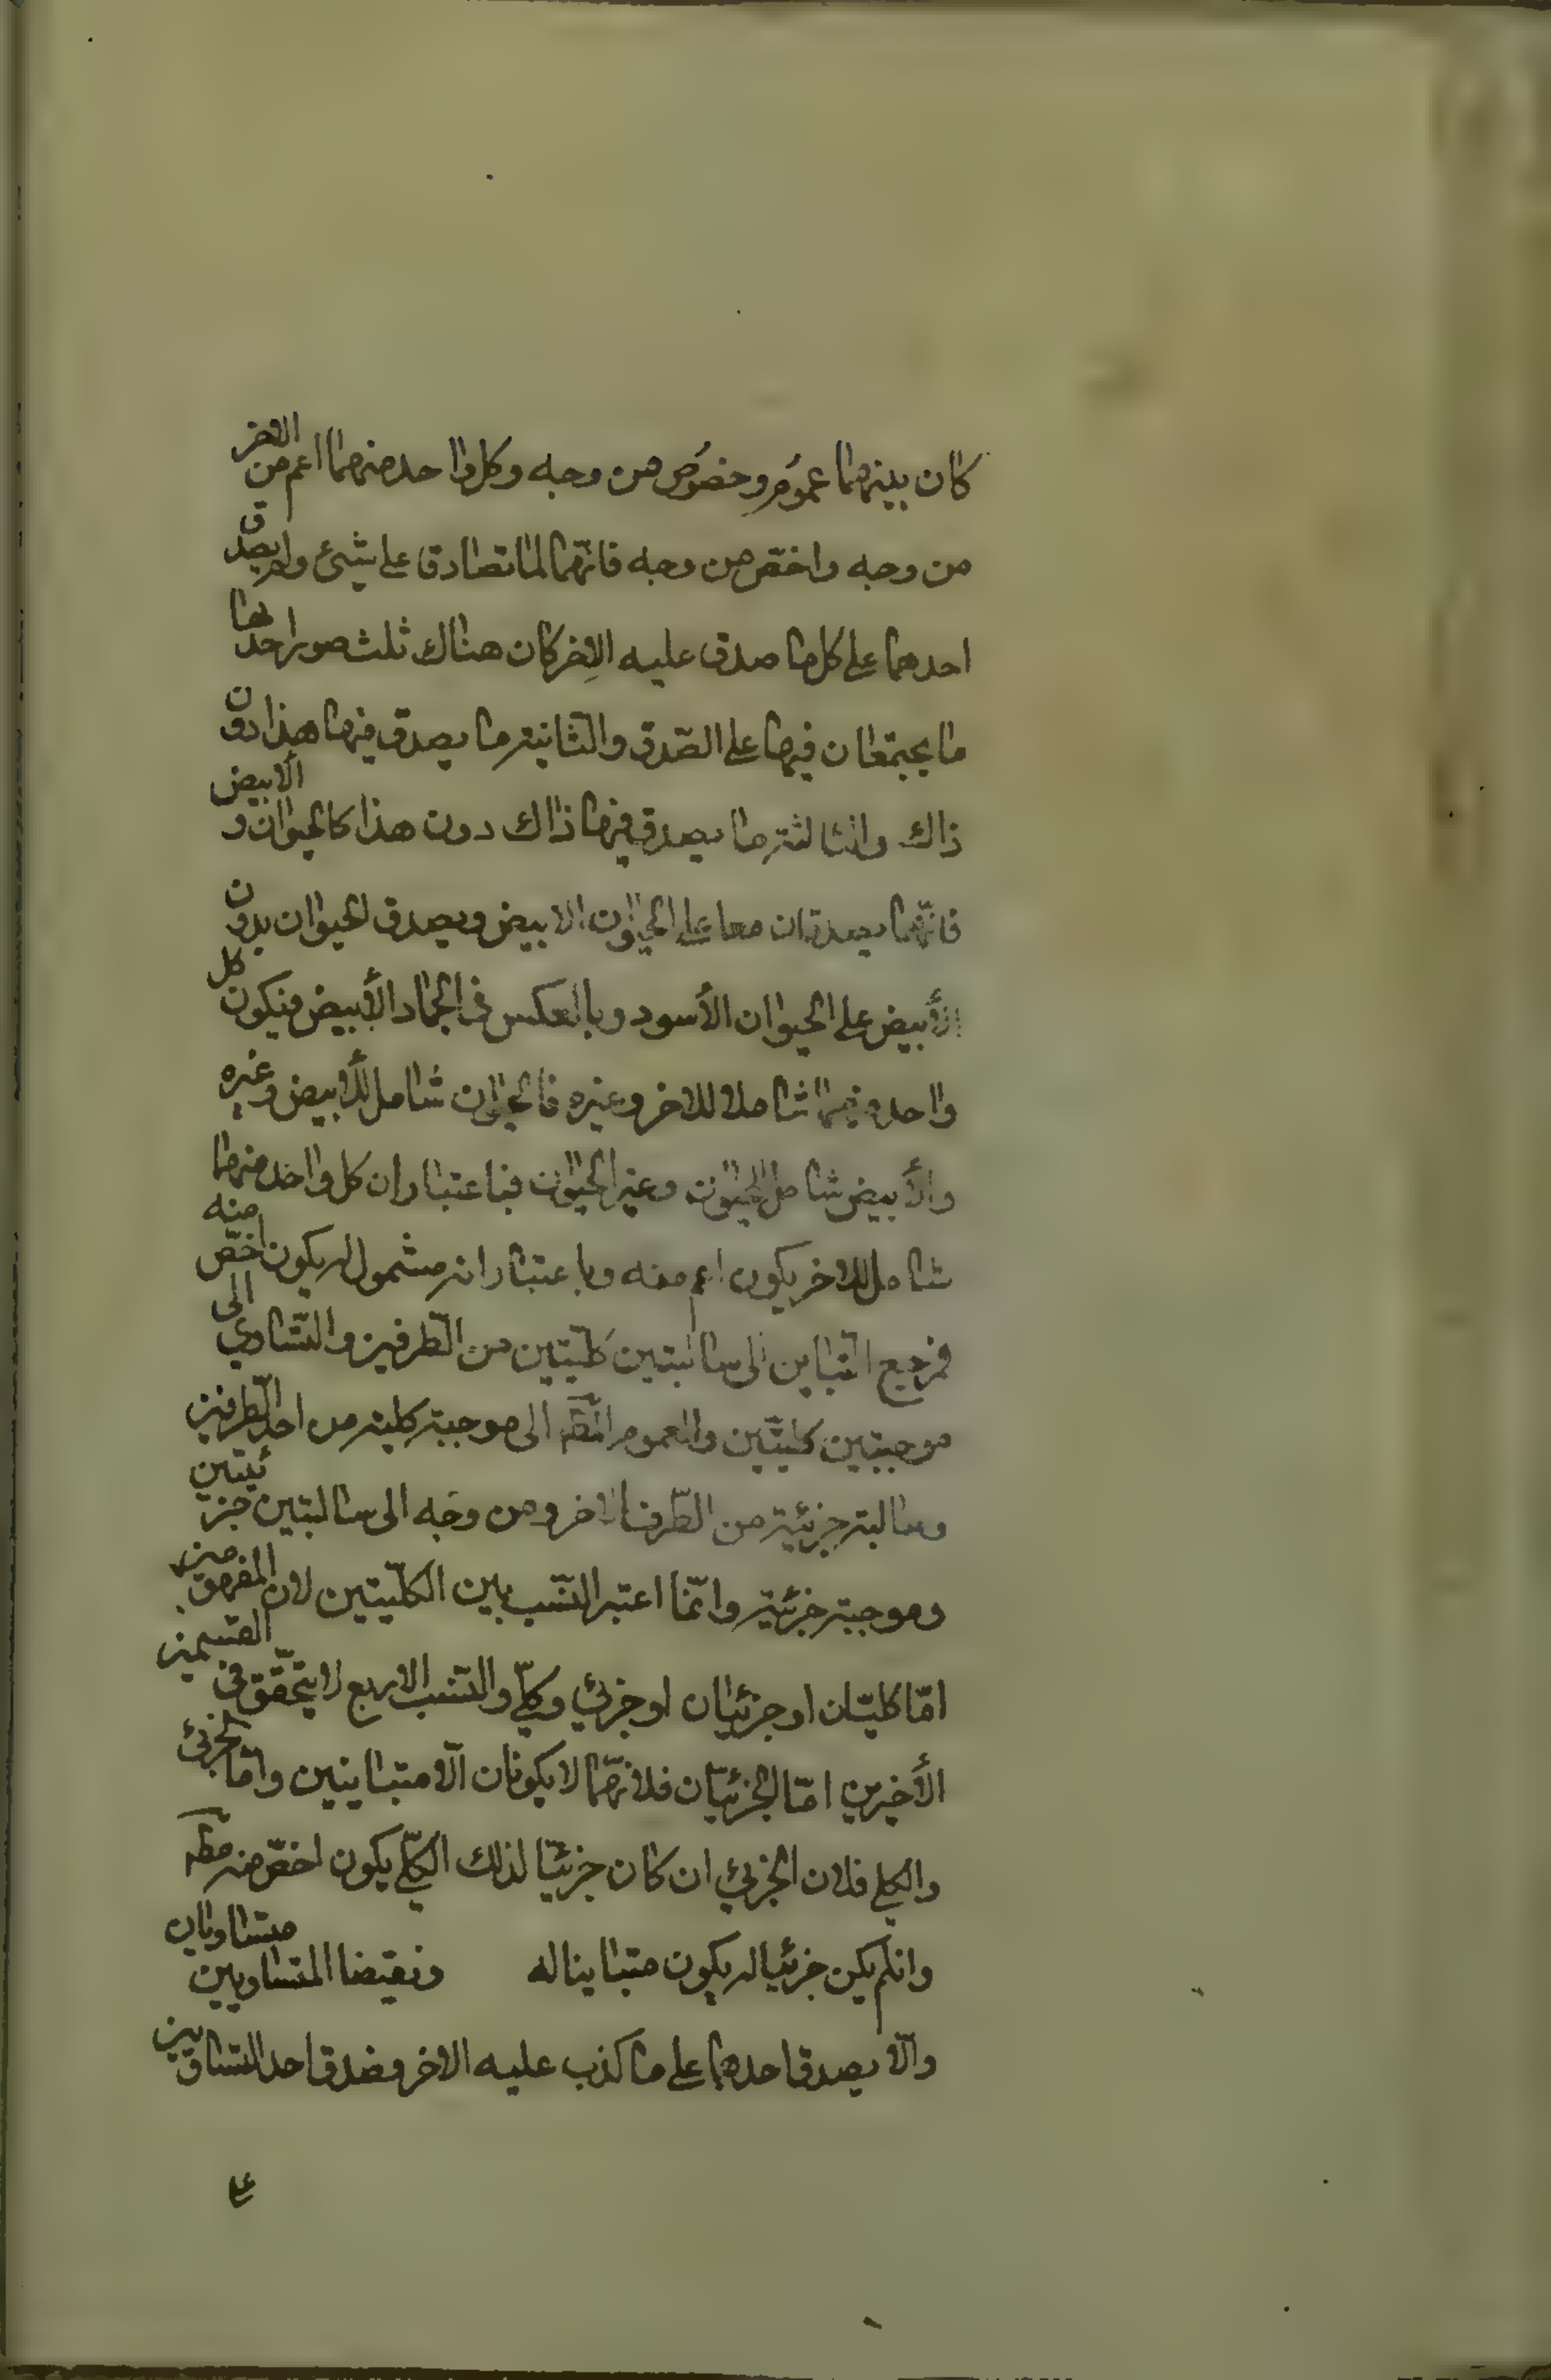 كان بينهما عموم وخصوص من وجه وكل واحد منهما اعم من الاخر
من وجه واخصّ من وجه فانّهما لما تصادقا على شيئ ولم يصدق
احدهما على كل ما صدق عليه الاخر كان هناك ثلث صور احدها
ما يجتمعان فيها على الصّدق والثّانية ما يصدق فيها هذا دون
ذاك والثالثة ما يصدق فيها ذاك دون هذا كالحيوان والابيض
فانّهما يصدقان معا على الحيوان الابيض ويصدق الحيوان بدون
الأبيض على الحيوان الأسود وبالعكس فى الجماد الأبيض فيكون كل
واحد منهما شاملا للاخر وغيره فالحيوان شامل للأبيض وغيره
والأبيض شامل للحيوان وغير الحيوان فباعتبار ان كل واحد منهما
شامل للاخر يكون اعم منه وباعتبار انه مشمول له يكون اخصّ منه
فمرجع التباين الى سالبتين كليّتين من الطّرفين والتّساوي الى
موجبتين كليّتين والعموم المطّ الى موجبة كلية من احد الطّرفين
وسالبة جزئية من الطّرف الاخر ومن وجه الى سالبتين جزئيتين
وموجبة جزئية وانّما اعتبر النّسب بين الكليّتين لان المفهومين
امّا كليّان او جزئيان او جزئي وكلّي والنّسب الاربع لا يتحقّق فى القسمين
الأخيرين امّا الجزئيّان فلانّهما لا يكونان الّا متباينين وامّا الجزئى
والكلي فلان الجزئي ان كان جزئيّا لذلك الكلّي يكون اخصّ منه مطّ
وان لم يكن جزئيا له يكون متباينا له ونقيضا المتساويين متساويان
والّا يصدق احدهما على ما كذب عليه الاخر وصدق احد المتساويين
على